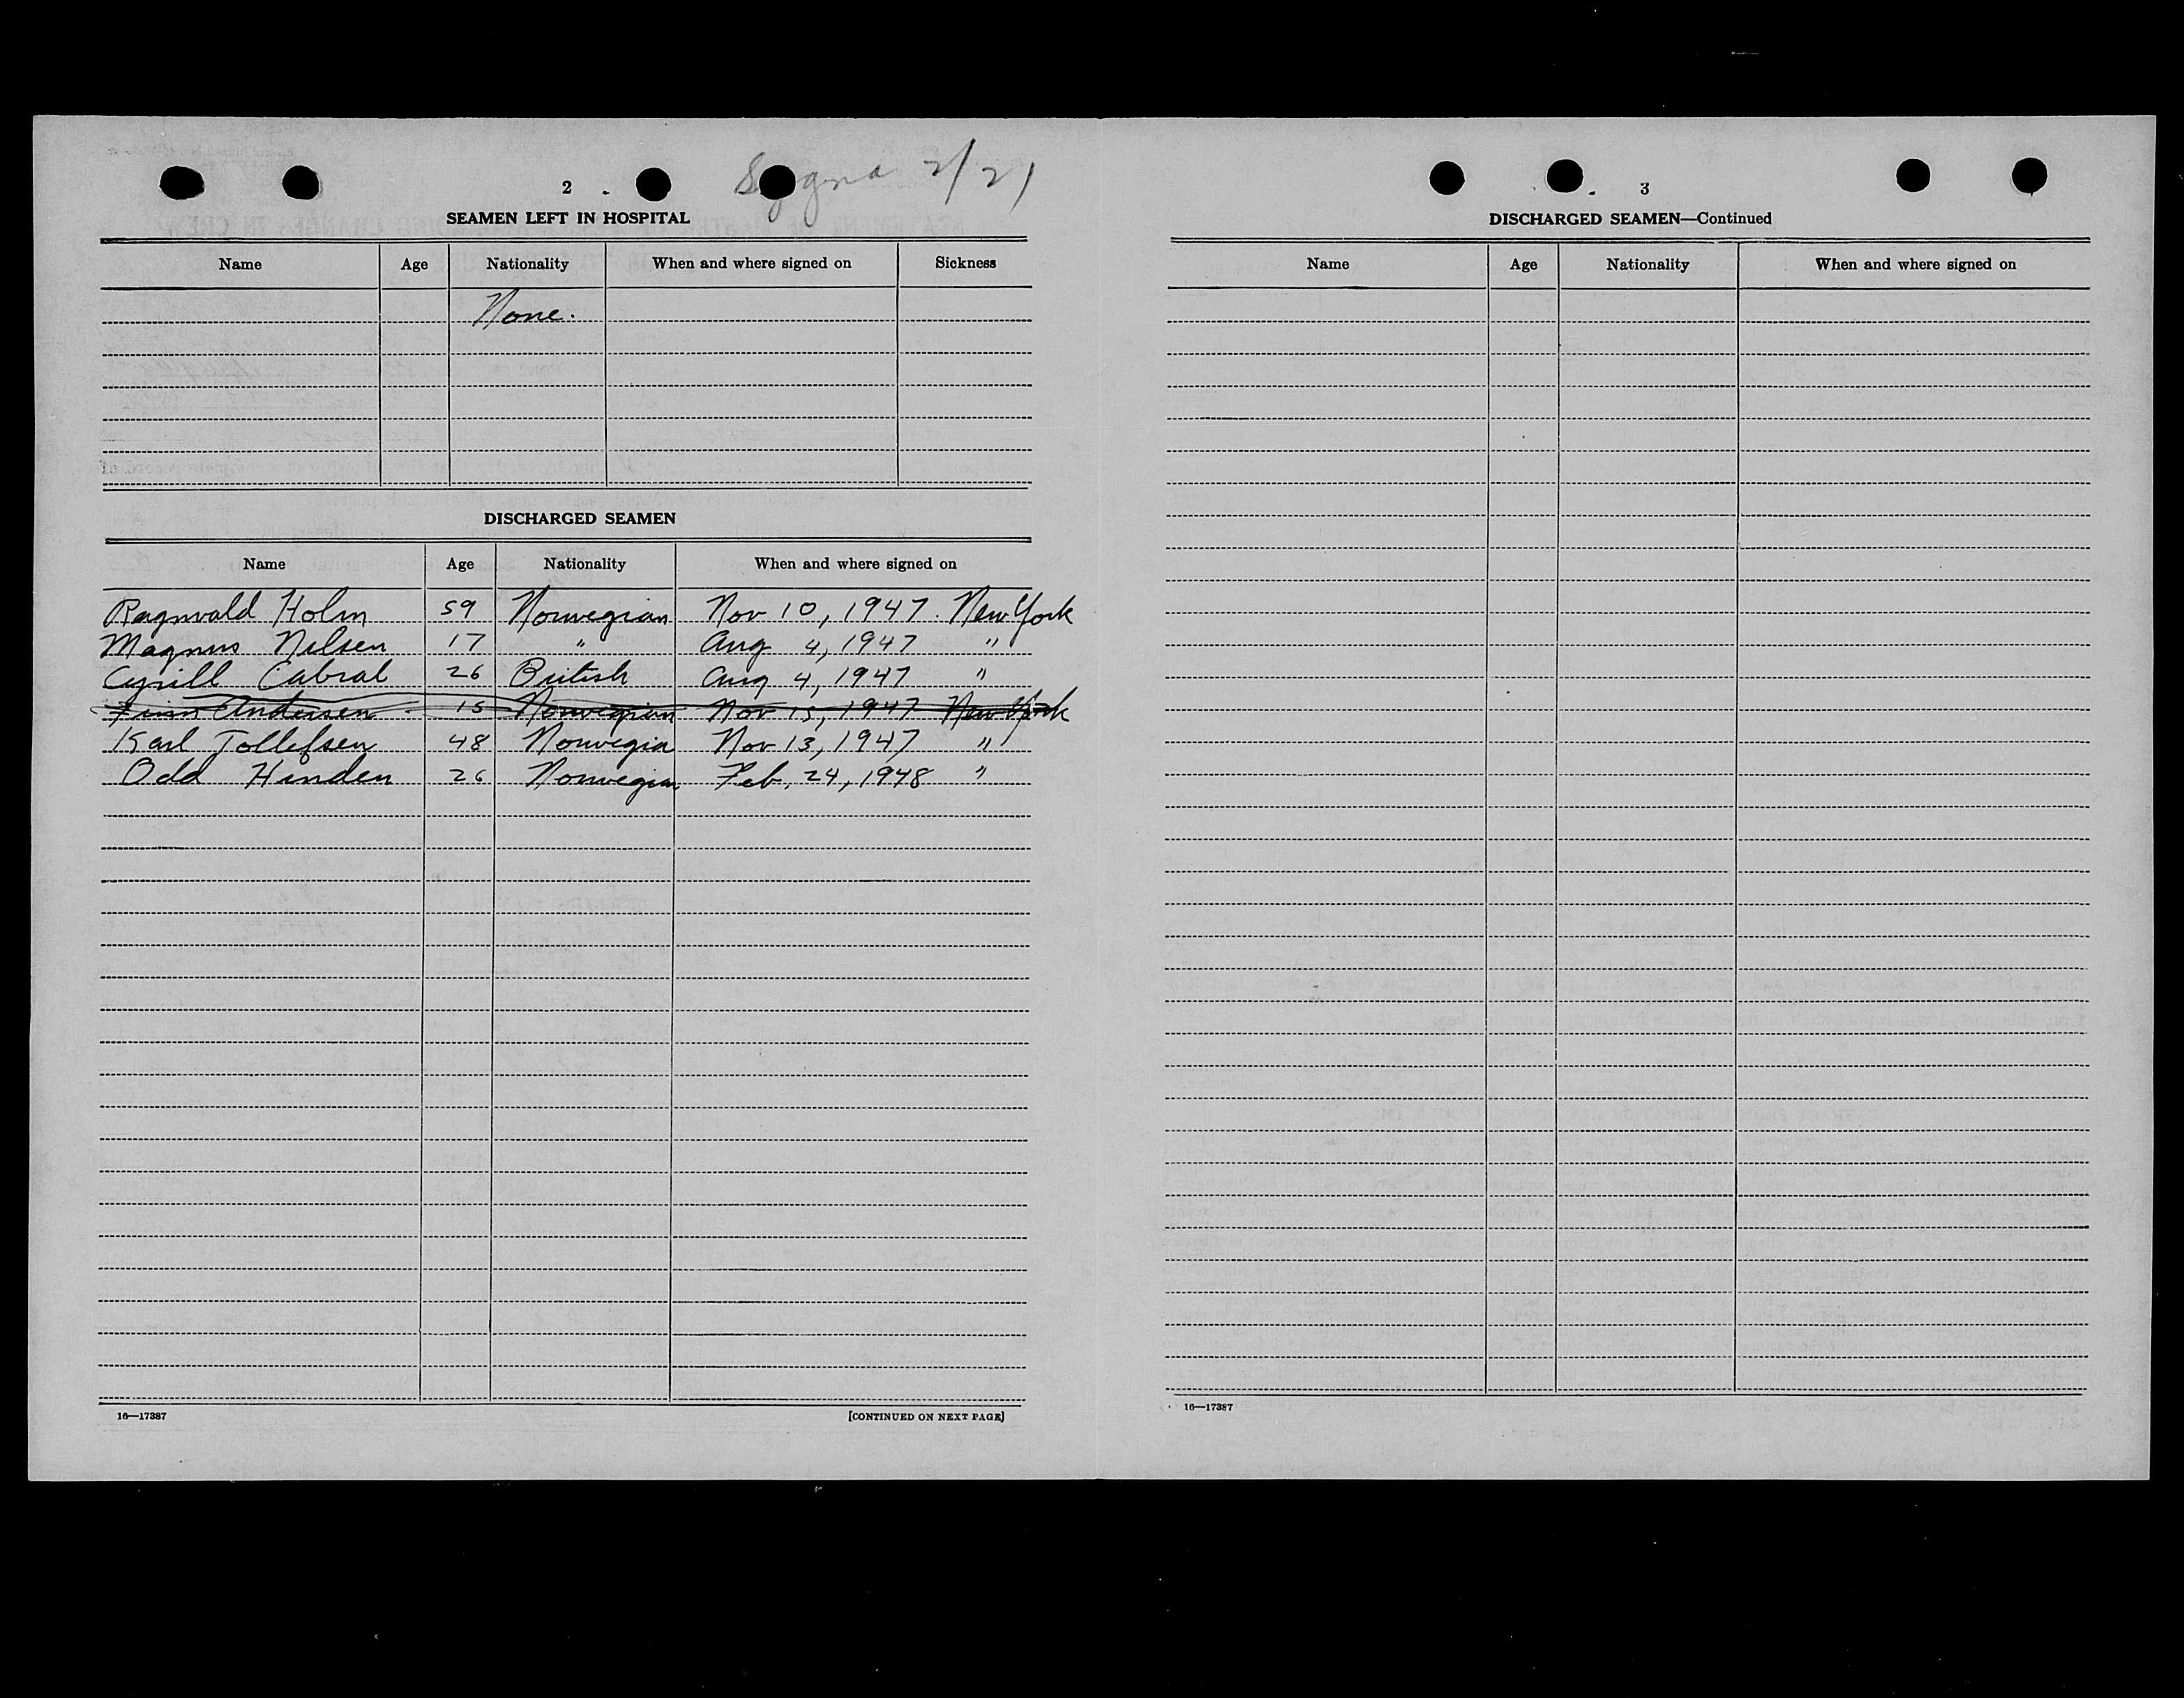 2
2/21
SEAMEN LEFT IN HOSPITAL
Name Age Nationality When and where signed on Sickness
None.
DISCHARGED SEAMEN
Name Age Nationality When and where signed on
Ragnvald Holm 59 Norwegian Nov 10, 1947. New York
Magnus Nilsen 17 " Aug 4, 1947 "
Cyrill Cabral 26 British Aug 4, 1947 "
Finn Andersen 15 Norwegian Nov 15, 1947 New York
Karl Tollefsen 48 Norwegia Nov 13, 1947 "
Odd Hinden 26 Norwegian Feb. 24, 1948 "
16—17387 [CONTINUED ON NEXT PAGE]
3
DISCHARGED SEAMEN—Continued
Name Age Nationality When and where signed on
16—17387